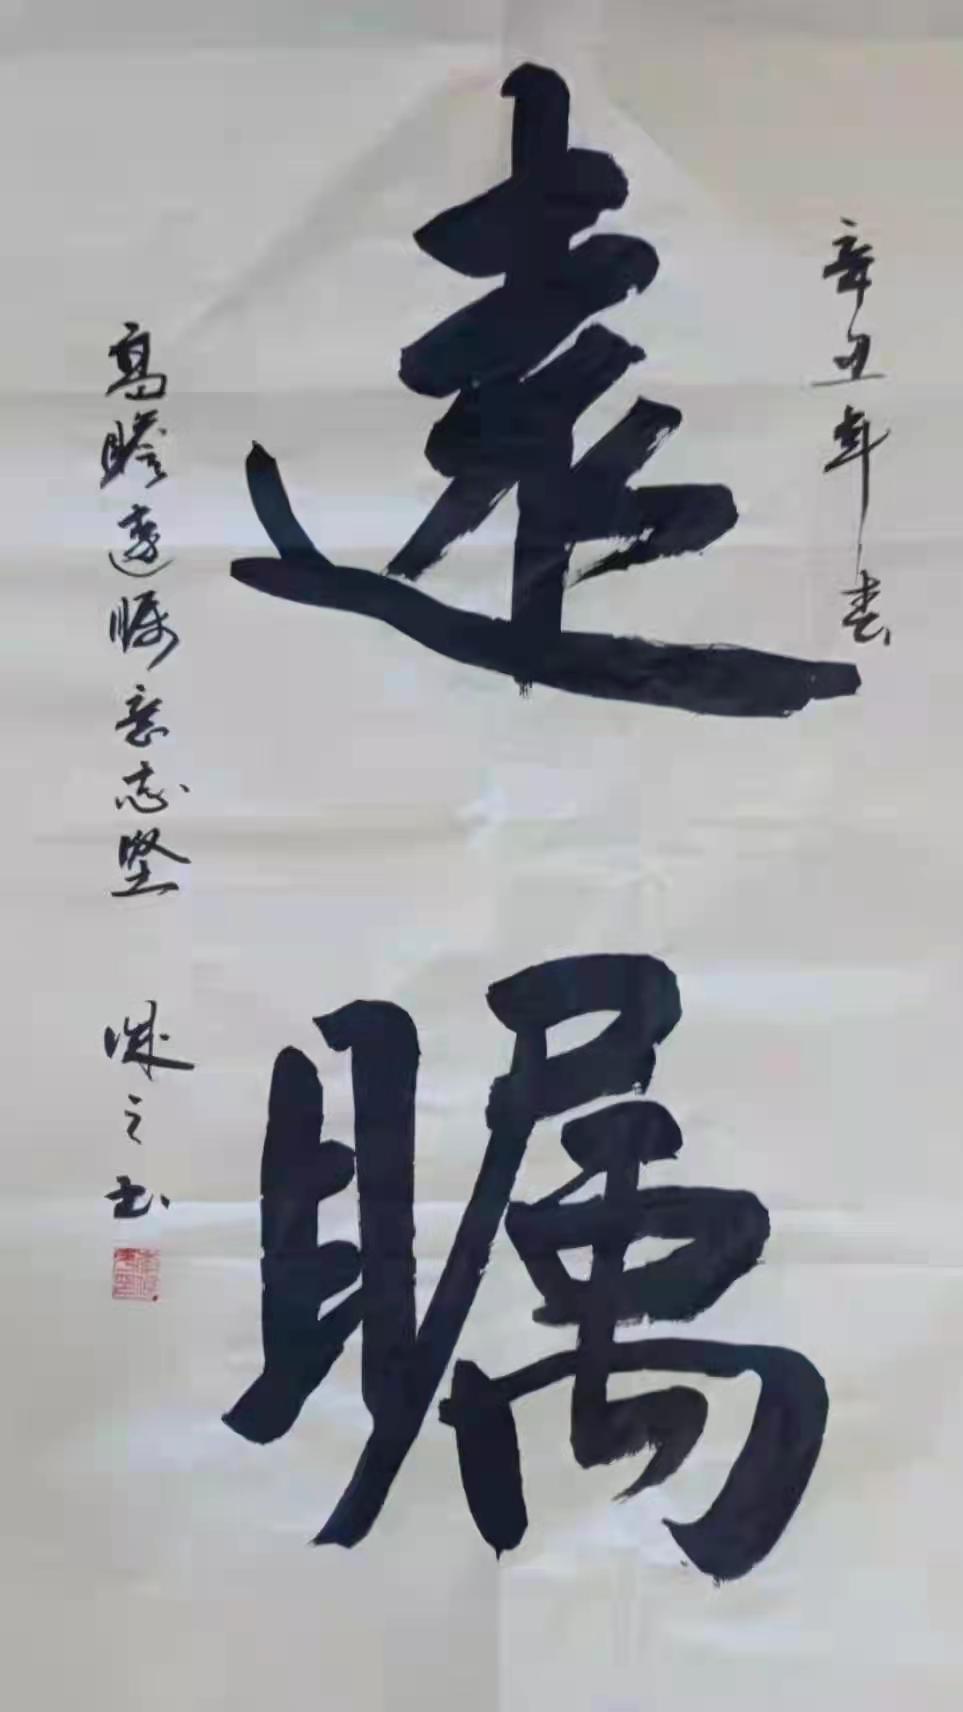 辛丑年春
遠
瞩
高瞻遠瞩意志坚
诚之书